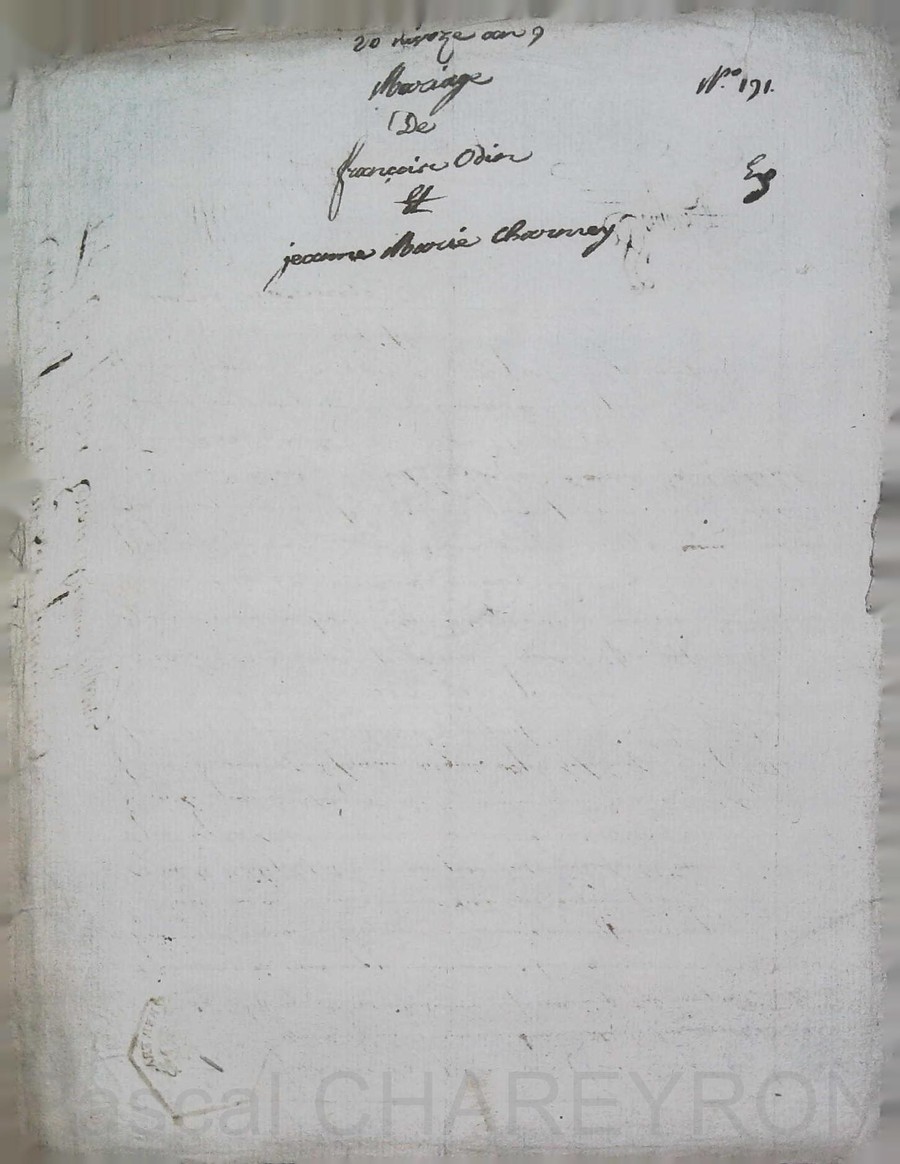 20 nivoze an 9
Mariage
N.° 191.
De
françois Odin
Et
jeanne Marie Charney
Pascal CHAREYRON